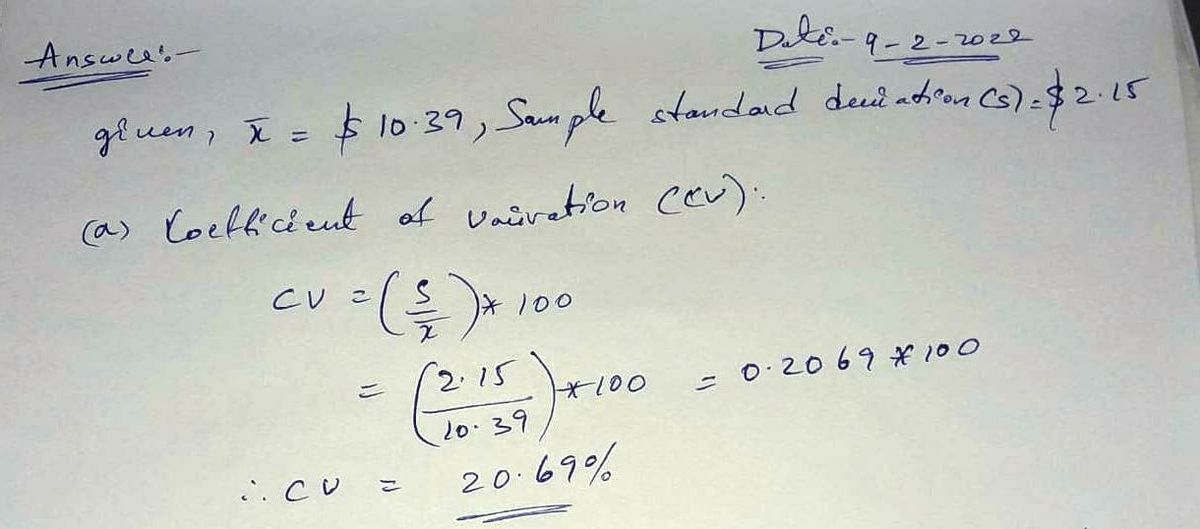 Answer:-
Date:- 9-2-2022
given, x̄ = $ 10.39, Sample standard deviation (s) = $ 2.15
(a) Coefficient of vairation (CV):
CV = (s/x̄) * 100
= (2.15/10.39) * 100 = 0.2069 * 100
∴ CV = 20.69%